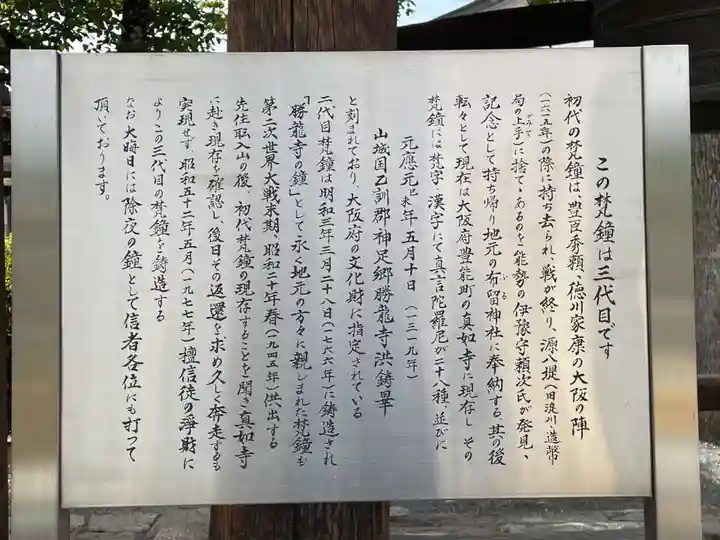 この梵鐘は三代目です
初代の梵鐘は、豊臣秀頼、徳川家康の大阪の陣
(一六一五年)の際、持ち去られ、戦が終り、源八堤(旧淀川、造幣
局の上手)に捨てゝあるのを能勢の伊豫守頼次氏が発見、
かみて
記念として持ち帰り地元の布留神社に奉納する。其の後
ふる
転々として現在は大阪府豊能町の真如寺に現存し その
梵鐘には梵字、漢字にて真言陀羅尼が二十八種、並びに
元應元己未年 五月十日 (一三一九年)
山城国乙訓郡神足郷勝龍寺洪鋳畢
と刻まれており、大阪府の文化財に指定されている
二代目梵鐘は明和三年三月二十八日(一七六六年)に鋳造され
「勝龍寺の鐘」として永く地元の方々に親しまれた梵鐘も
第二次世界大戦末期、昭和二十年春(一九四五年)供出する
先住 入山の後、初代梵鐘の現存することを聞き真如寺
に赴き現存を確認し、後日その返還を求め久しく奔走するも
実現せず、昭和五十二年五月(一九七七年)檀信徒の浄財に
よりこの三代目の梵鐘を鋳造する
なお 大晦日には除夜の鐘として信者各位にも打って
頂いております。